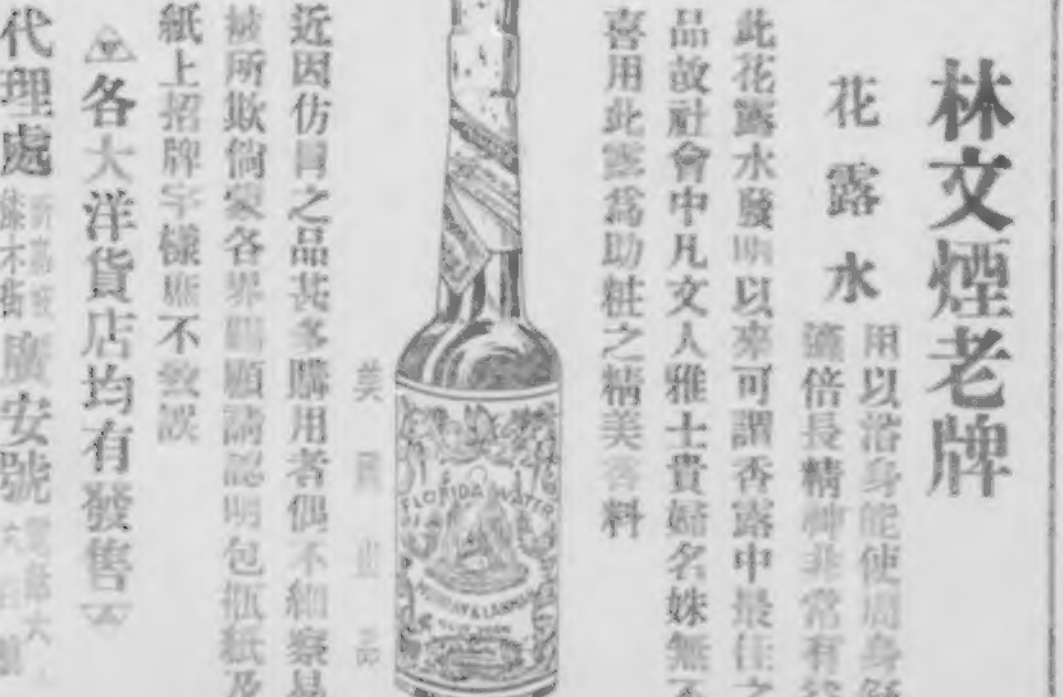 林文煙老牌
花露水
用以浴身能使周身
倍長精神非常有
此花露水發明以來可謂香露中最佳之
品故社會中凡文人雅士貴婦名姝無不
喜用此露為助粧之精美香料
FLORIDA WATER
MURRAY & LANMAN
美
近因仿冒之品甚多購用者偶不細察易
被所欺倘蒙各界賜顧請認明包瓶紙及
紙上招牌字樣庶不致誤
各大洋貨店均有發售
代理處
漆木街
廣安號